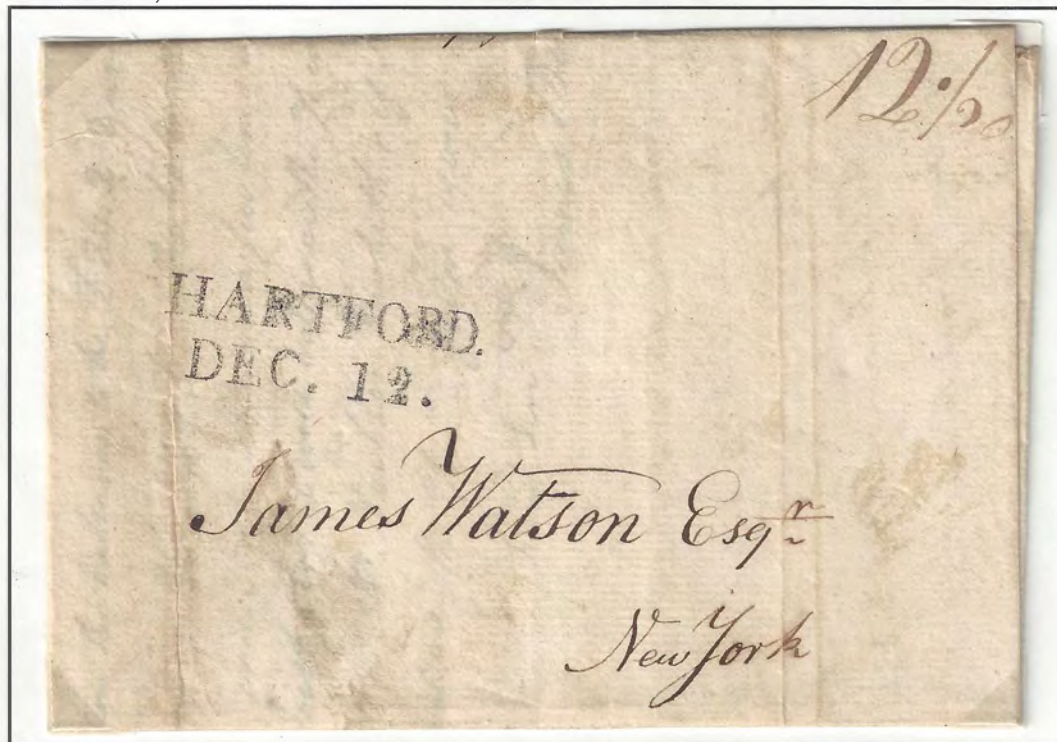 12 1/2
HARTFORD.
DEC. 12.
James Watson Esqr
New York